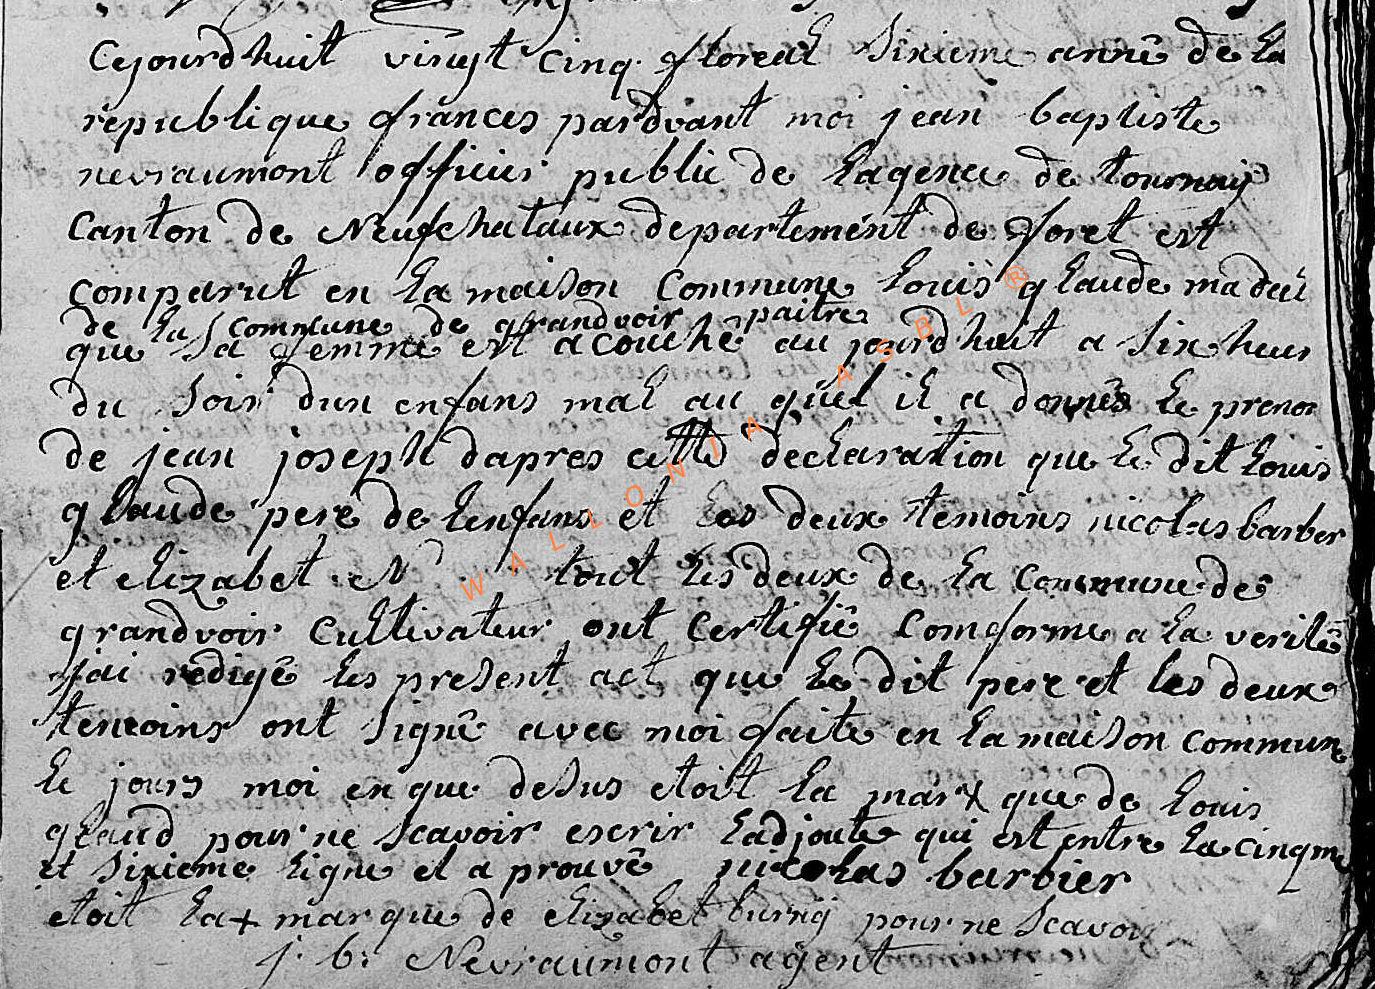 Cejourdhuit vingt cinq floreal sixieme anné de la
republique frances pardvant moi jean baptiste
nevraumont officier public de lagence de tournay
Canton de Neufchataux departement de foret est
comparut en la maison Commune louis glaude
de la commune de grandvoir paitre
que sa femme est acouché au jourdhuit a six heur
du soir dun enfans mal au quel il a donnés le prenon
de jean joseph dapres cette declaration que le dit louis
glaude pere de lenfans et les deux temoins nicolas barber
et elizabet N tout les deux de la Commune de
grandvoir Cultivateur ont Certifié Comforme a la verité
jai redigé les present act que le dit pere et les deux
temoins ont signé avec moi faite en la maison commune
le jours moi en que desus etoit la marx que de louis
glaud pour ne scavoir escrir ladjoute qui est entre la cinqme
et sixieme ligne et a prouvé nicolas barbier
etoit la + marque de elizabet pour ne scavoir
j. b: Nevraumont agent
WALLONIA ASBL ®